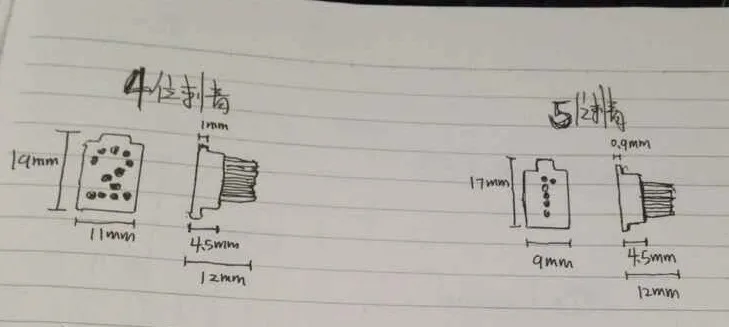 4位刺青
1mm
19mm
11mm
4.5mm
12mm
5位刺青
0.9mm
17mm
9mm
4.5mm
12mm